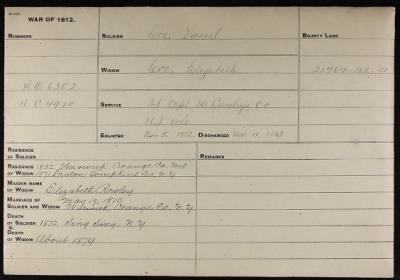 WAR OF 1812.
NUMBERS
SOLDIER Coe, Daniel
BOUNTY LAND
WIDOW Coe, Elizabeth
21464-160-50
W.O. 6302
W.C. 4910
SERVICE Capt. Co
U.S. Vols
ENLISTED Nov. 5, 1812 DISCHARGED Nov. 1813
RESIDENCE OF SOLDIER
REMARKS
RESIDENCE OF WIDOW 1852 Warwick Orange Co.
1871 Groton, Tompkins Co. N.Y.
MAIDEN NAME OF WIDOW Elizabeth Rowley
MARRIAGE OF SOLDIER AND WIDOW May 17, 1810, Warwick, Orange Co. N.Y.
DEATH OF SOLDIER 1832 Sing Sing, N.Y.
DEATH OF WIDOW About 1879